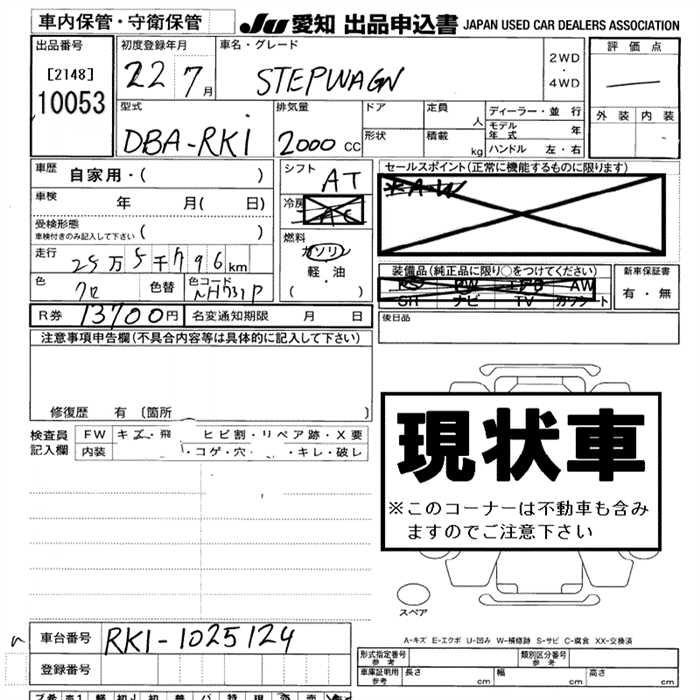 車内保管・守衛保管 JU 愛知 出品申込書 JAPAN USED CAR DEALERS ASSOCIATION
出品番号 初度登録年月 車名・グレード 評価点
[2148] 22 7月 STEPWAGN 2WD・4WD
10053 外装 内装
型式 排気量 ドア 定員 人 ディーラー・並行
モデル年式 年
DBA-RK1 2000 CC 形状 積載 kg ハンドル 左・右
車歴 自家用・( ) シフト AT セールスポイント(正常に機能するものに限ります)
車検 年 月( 日) 冷房 AC ※A-W
受検形態
車検付きのみ記入して下さい ( ) 燃料 ガソリン
走行 25万5千796km 軽油 装備品(純正品に限り○をつけてください) 新車保証書
色 クロ 色替 色コード NH731P ・ ( ) PS PW エアB AW 有・無
SR ナビ TV カワシート
R券 13700円 名変通知期限 月 日 後日品
注意事項申告欄(不具合内容等は具体的に記入して下さい)
修復歴 有〔箇所 〕
検査員 FW キズ・飛 ヒビ割・リペア跡・X要
記入欄 内装 ・コゲ・穴 ・キレ・破レ
現状車
※このコーナーは不動車も含み
ますのでご注意下さい
スペア
A-キズ E-エクボ U-凹み W-補修跡 S-サビ C-腐食 XX-交換済
車台番号 RK1-1025124
登録番号 形式指定番号 参考 類別区分番号 参考
車庫証明用 参考 長さ cm 幅 cm 高さ cm